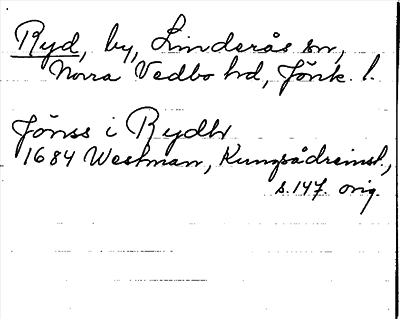 Ryd, by, Linderås sn,
Norra Vedbo hd, Jönk. l.
Jönss i Rydh
1684 Westman, Kungsådreinst.,
s. 147. orig.